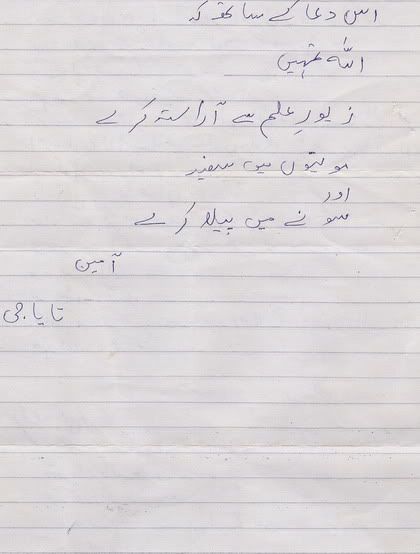 اس دعا کے ساتھ کہ
اللہ تمہیں
زیورِ علم سے آراستہ کرے
موتیوں میں سفید
اور
سونے میں پیلا کرے
آمین
تایا جی